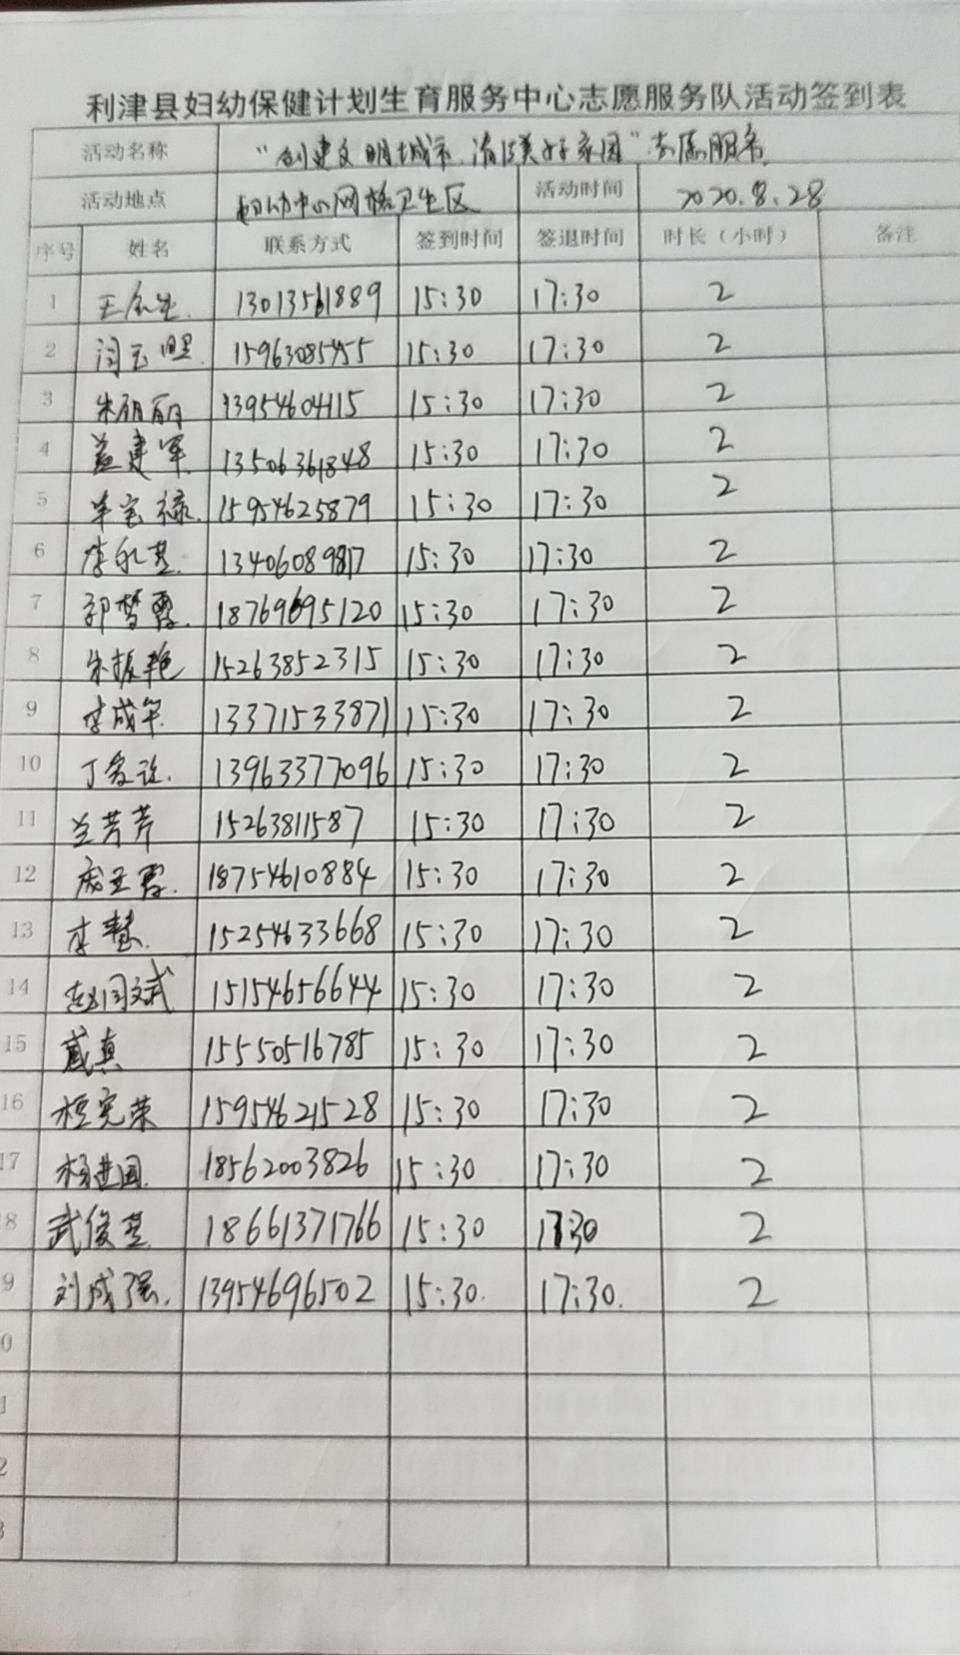 利津县妇幼保健计划生育服务中心志愿服务队活动签到表
活动名称 “创建文明城市,清洁美好家园”志愿服务
活动地点 妇幼中心网格卫生区 活动时间 2020.8.28
序号 姓名 联系方式 签到时间 签退时间 时长（小时） 备注
1 13013561889 15:30 17:30 2
2 闫玉照 15963085455 15:30 17:30 2
3 朱丽丽 13954604115 15:30 17:30 2
4 盖建军 13506361848 15:30 17:30 2
5 宝禄 15954625879 15:30 17:30 2
6 李永芝 13406089817 15:30 17:30 2
7 郭梦霞 18769695120 15:30 17:30 2
8 朱振艳 15263852315 15:30 17:30 2
9 李成军 13371533871 15:30 17:30 2
10 丁爱 13963377096 15:30 17:30 2
11 兰芳芳 15263811587 15:30 17:30 2
12 18754610884 15:30 17:30 2
13 李慧 15254633668 15:30 17:30 2
14 赵闫斌 15154656644 15:30 17:30 2
15 臧真 15550516785 15:30 17:30 2
16 程宪荣 15954621528 15:30 17:30 2
17 杨进国 18562003826 15:30 17:30 2
8 武俊芝 18661371766 15:30 17:30 2
9 刘成强 13954696502 15:30 17:30 2
0
1
2
3